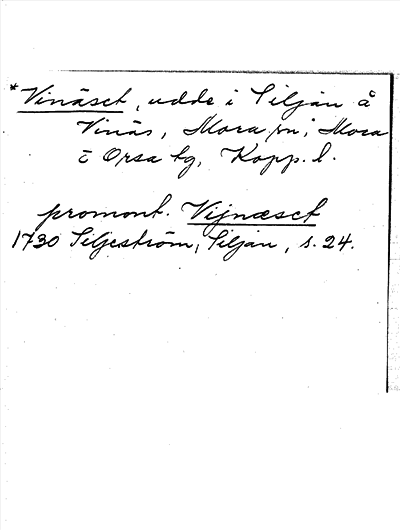 *Vinäset, udde i Siljan å
Vinäs, Mora sn, Mora
o Orsa tg, Kopp. l.
promont. Vijnæset
1730 Siljeström, Siljan, s. 24.